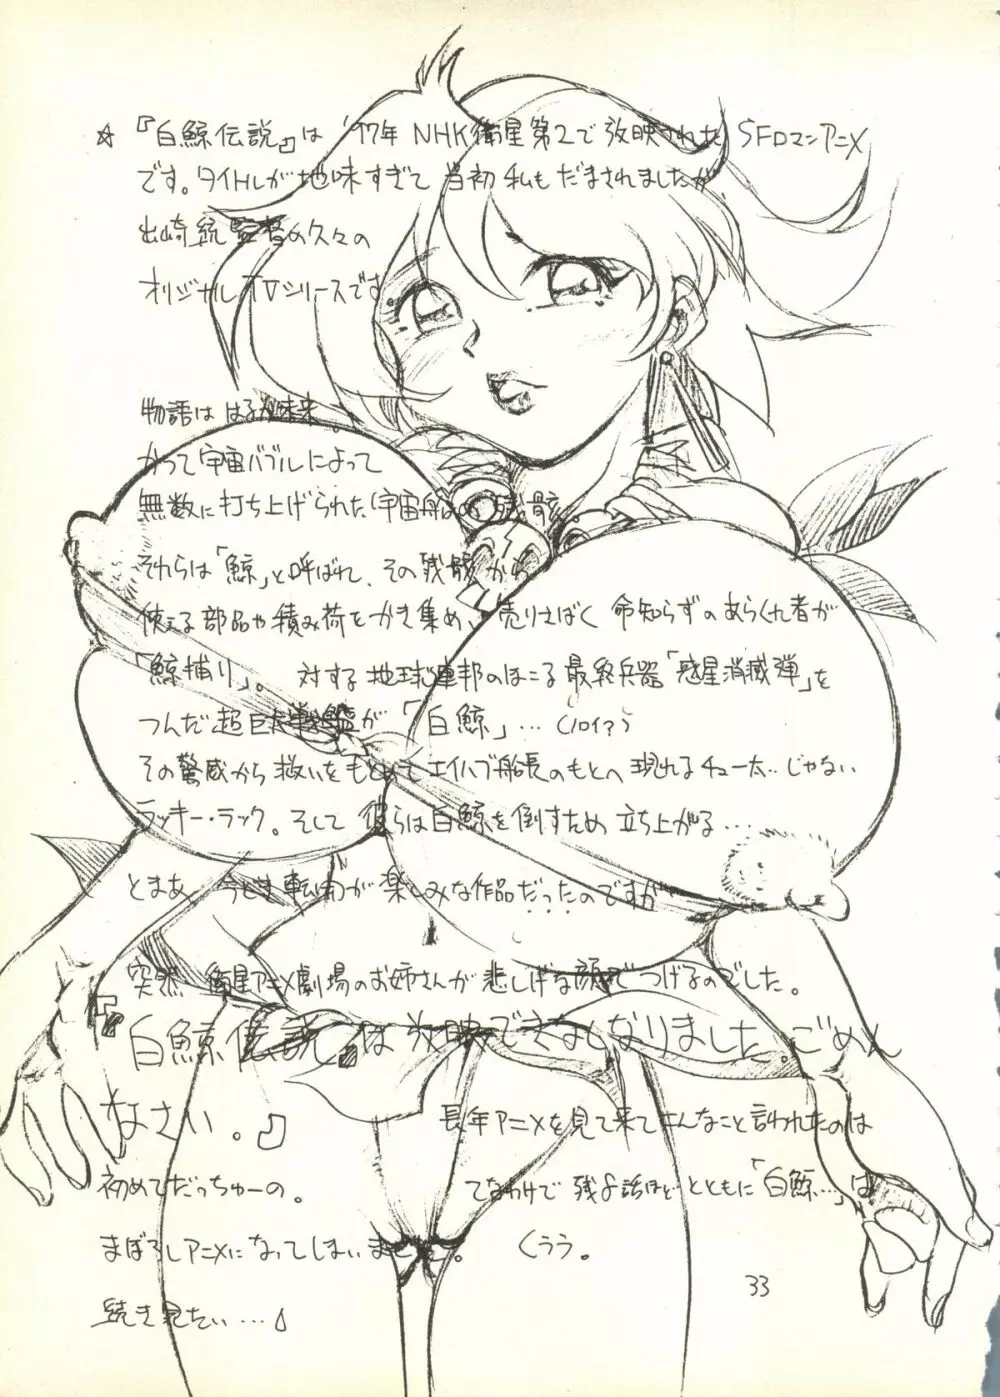 ☆『白鯨伝説』は '97年 NHK衛星第2で放映された SFロマンアニメ
です。タイトルが地味すぎて 当初 私も だまされましたが、
出崎統監督の久々の
オリジナルTVシリーズです
物語は はるか未来。
かつて宇宙バブルによって
無数に打ち上げられた宇宙船の残骸
それらは「鯨」と呼ばれ、その残骸から
使える部品や積み荷をかき集め、売りさばく 命知らずのあらくれ者が
「鯨捕り」。 対する地球連邦のほこる最終兵器「惑星消滅弾」を
つんだ超巨大戦艦が「白鯨」…
その驚威から救いをもとめてエイハブ船長のもとへ現れるチュー太‥じゃない
ラッキー・ラック。そして 彼らは白鯨を倒すため 立ち上がる…
とまあ、今どき転があが楽しみな作品だったのですが
突然 衛星アニメ劇場のお姉さんが悲しげな顔でつげるのでした。
『白鯨伝説』は放映できなくなりました。ごめん
なさい。』 長年アニメを見て来てこんなこと言われたのは
初めてだっちゅーの。 てなわけで 残8話ほどとともに「白鯨…」は
まぼろしアニメになってしまいました。 くうう。
続き見たい…
33